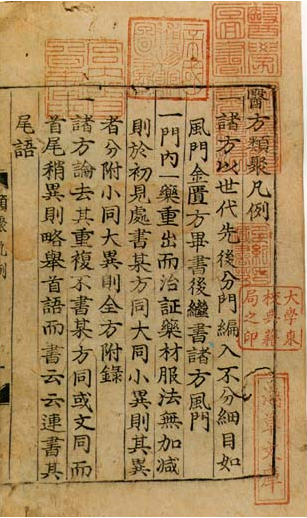 醫方類聚凡例
一諸方以世代先後分門編入不分細目如
風門金匱方畢書後繼書諸方風門
一門內一藥重出而治証藥材服法無加減
則於初見處書某方大同小異則其異
者分附小同大異則全方附錄
一諸方論去其重複不書某方同或文同而
首尾稍異則略舉首語而書云云連書其
尾語
大學東
校典籍
局之印
類聚凡例